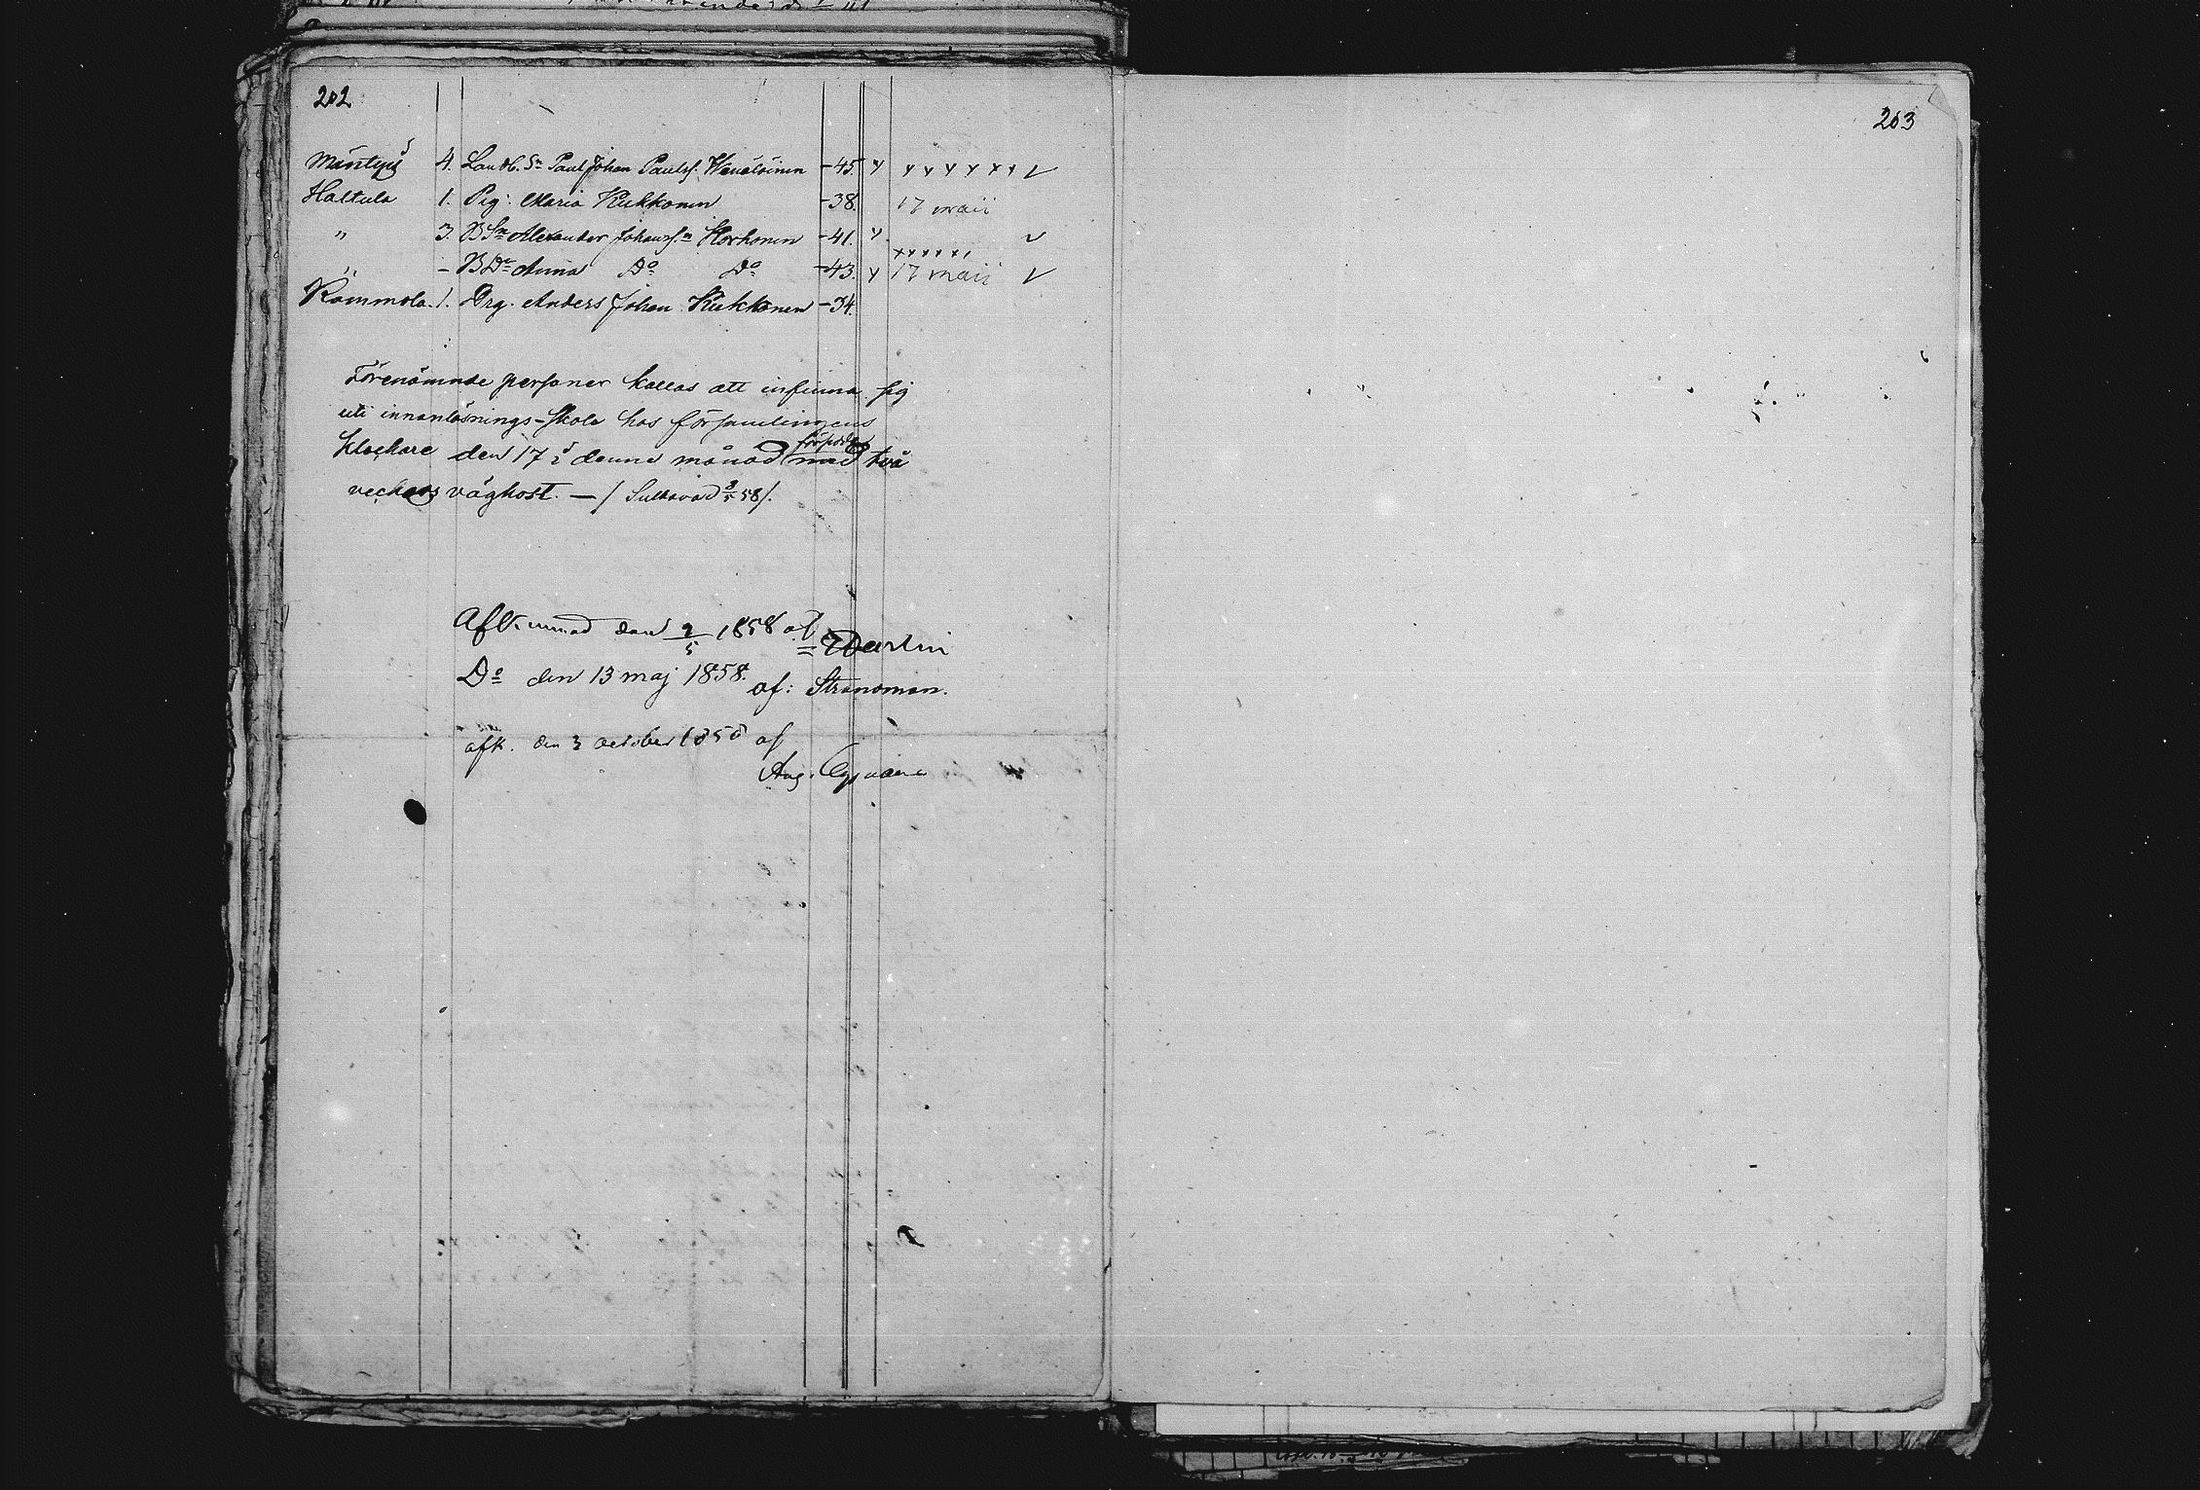 202
Mäntyis 4. Landb. Sn Paul Johan Paulsf. Wänäläinen -45. x x x x x x x
Haltula 1. Pig. Maria Kukkonen -38. 17 maii
" 3. B Sn Alexander Johansf.n Korhonen -41. x
x x x x x x
" - B Dr Anna Do Do -43. x 17 maii
Rommola. 1. Drg. Anders Johan Kukkonen -34.
Förenämnde personer kallas att infinna sig
uti innanläsnings-skola hos församlingens
klockare den 17 denne månad med två
veckors vägkost. — / Sulkava d 8/5 58/.
den 9/5 1858 af
Do den 13 maj 1858. af: Strandman.
afk. den 3 october 1858 af
Aug.
203